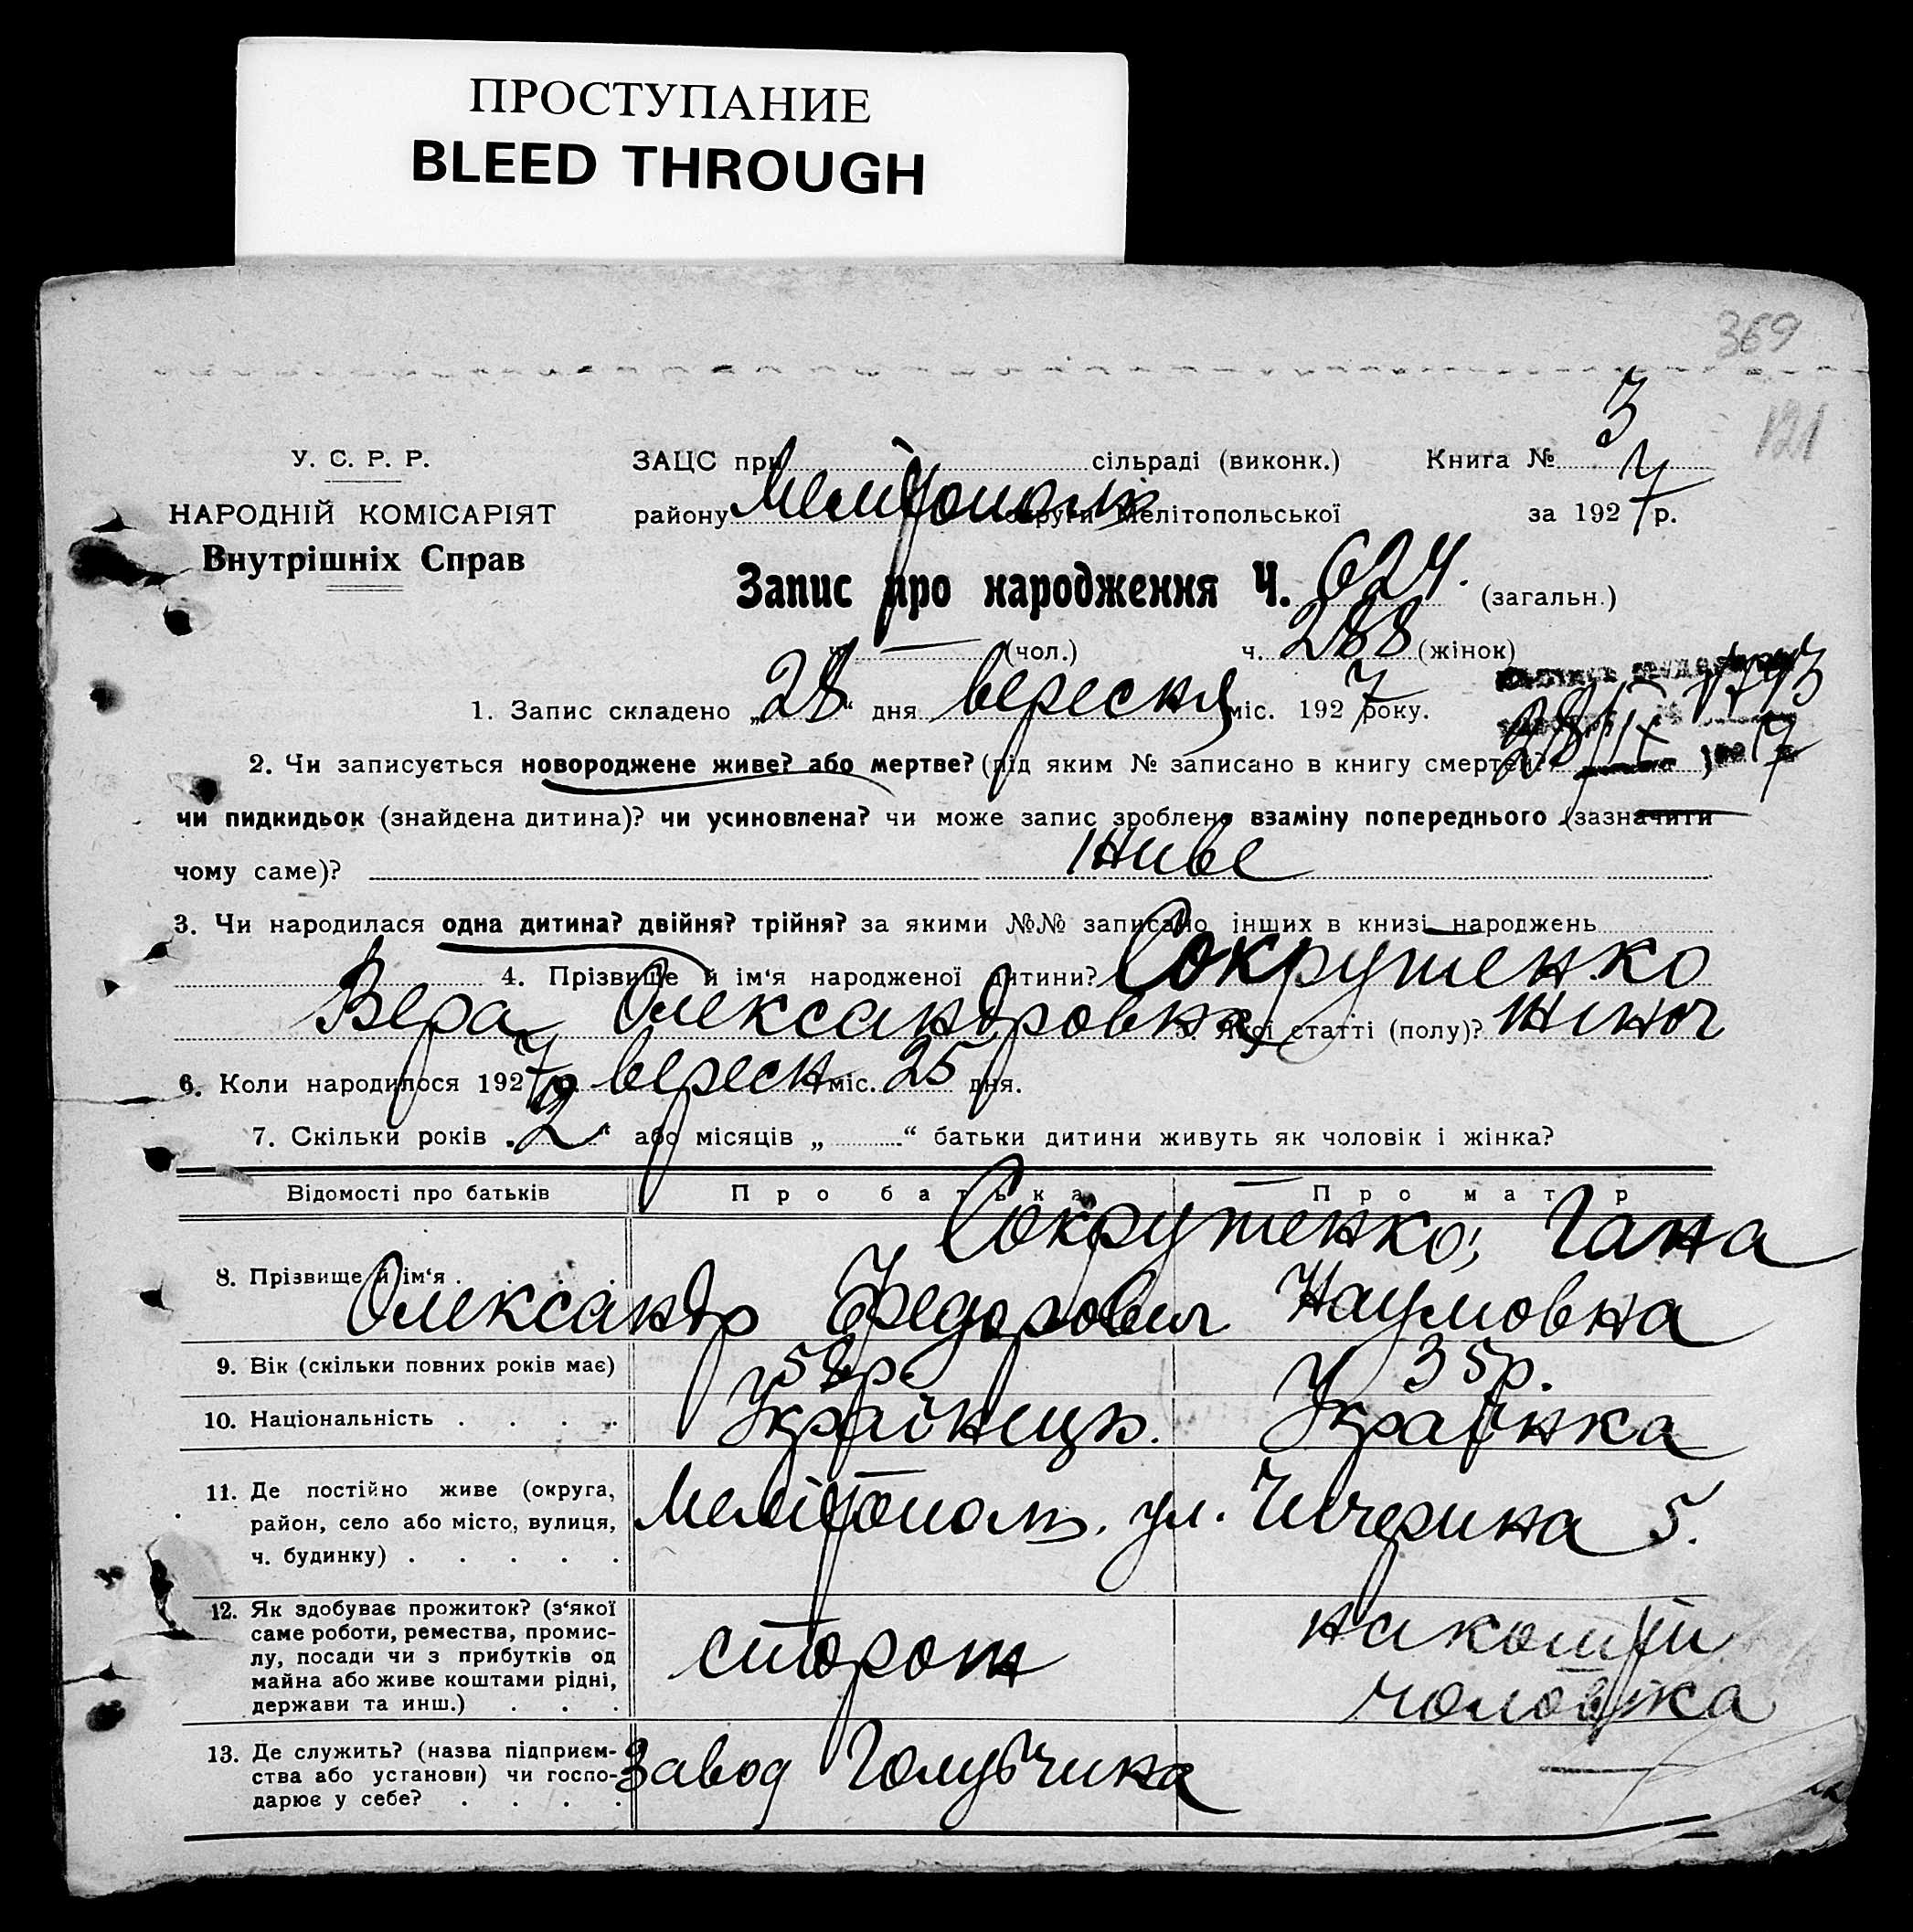 ПРОСТУПАНИЕ
BLEED THROUGH
369
3
121
У. С. Р. Р.
ЗАЦС при сільраді (виконк.) Книга № 4
НАРОДНІЙ КОМІСАРІЯТ
району Мелітополь округи Мелітопольської за 1927 р.
Внутрішніх Справ
Запис про народження Ч. 624. (загальн.)
ч. — (чол.) ч. 288 (жінок)
1. Запис складено „28“ дня вересня міс. 1927 року.
1793
28/IX 1927
2. Чи записується новороджене живе? або мертве? (під яким № записано в книгу смертей?
чи пидкидьок (знайдена дитина)? чи усиновлена? чи може запис зроблено взаміну попереднього (зазначити
чому саме)? Живе
3. Чи народилася одна дитина? двійня? трійня? за якими №№ записано інших в книзі народжень
4. Прізвище й ім‘я народженої дитини? Сокрутенко
Вера Олександровна 5. Якої статті (полу)? жіноч
6. Коли народилося 1927 р. вересн міс. 25 дня.
7. Скільки років „2“ або місяців „ “ батьки дитини живуть як чоловік і жінка?
Відомості про батьків Про батька Про матір
Сокрутенко, Гана
8. Прізвище й ім‘я . Олександр Федорович Наумовна
9. Вік (скільки повних років має) 58 р. 35 р.
10. Національність . . . . Українець. Українка
11. Де постійно живе (округа,
район, село або місто, вулиця,
ч. будинку) . . . . .
Мелітополь, ул. Чичерина 5.
12. Як здобуває прожиток? (з‘якої
саме роботи, ремества, промис-
лу, посади чи з прибутків од
майна або живе коштами рідні,
держави та инш.) . . .
сторож
на кошти
чоловіка
13. Де служить? (назва підприєм-
ства або установи) чи госпо-
дарює у себе? . . . .
Завод Голубчика
—